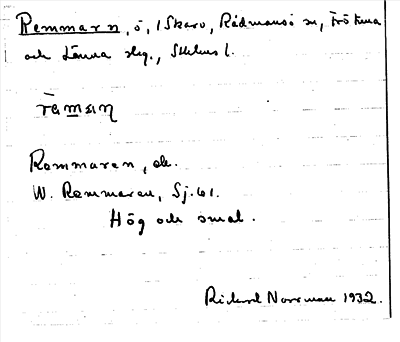 Remmarn, ö, i Skarv, Rådmansö sn, Frötuna
och Länna skg., Sthlms l.
Remmaren, ek.
W. Remmaren, Sj. 61.
Hög och smal.
Rickard Norrman 1932.